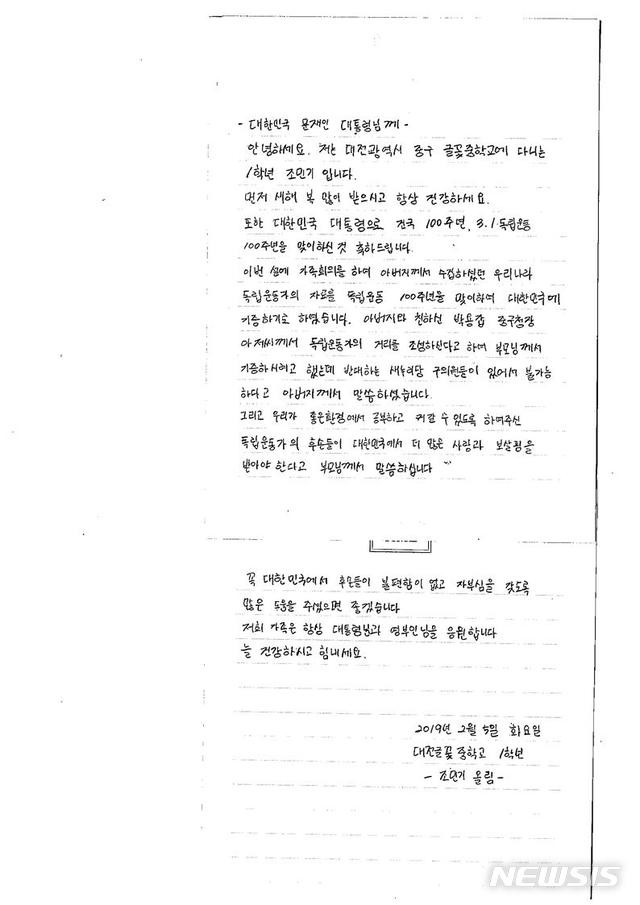 - 대한민국 문재인 대통령님께 -
안녕하세요. 저는 대전광역시 중구 글꽃중학교에 다니는
1학년 조민기 입니다.
먼저 새해 복 많이 받으시고 항상 건강하세요.
또한 대한민국 대통령으로 건국 100주년, 3.1 독립운동
100주년을 맞이하신 것 축하드립니다.
이번 설에 가족회의를 하여 아버지께서 수집하셨던 우리나라
독립운동가의 자료를 독립운동 100주년을 맞이하여 대한민국에
기증하기로 하였습니다. 아버지와 친하신 박용갑 중구청장
아저씨께서 독립운동가의 거리를 조성하신다고 하여 부모님께서
기증하시려고 했는데 반대하는 새누리당 구의원들이 있어서 불가능
하다고 아버지께서 말씀하셨습니다.
그리고 우리가 좋은환경에서 공부하고 커갈 수 있도록 하여주신
독립운동가의 후손들이 대한민국에서 더 많은 사랑과 보살핌을
받아야 한다고 부모님께서 말씀하십니다
꼭 대한민국에서 후손들이 불편함이 없고 자부심을 갖도록
많은 도움을 주셨으면 좋겠습니다
저희 가족은 항상 대통령님과 영부인님을 응원합니다
늘 건강하시고 힘내세요.
2019년 2월 5일 화요일
대전글꽃중학교 1학년
- 조민기 올림 -
NEWSIS